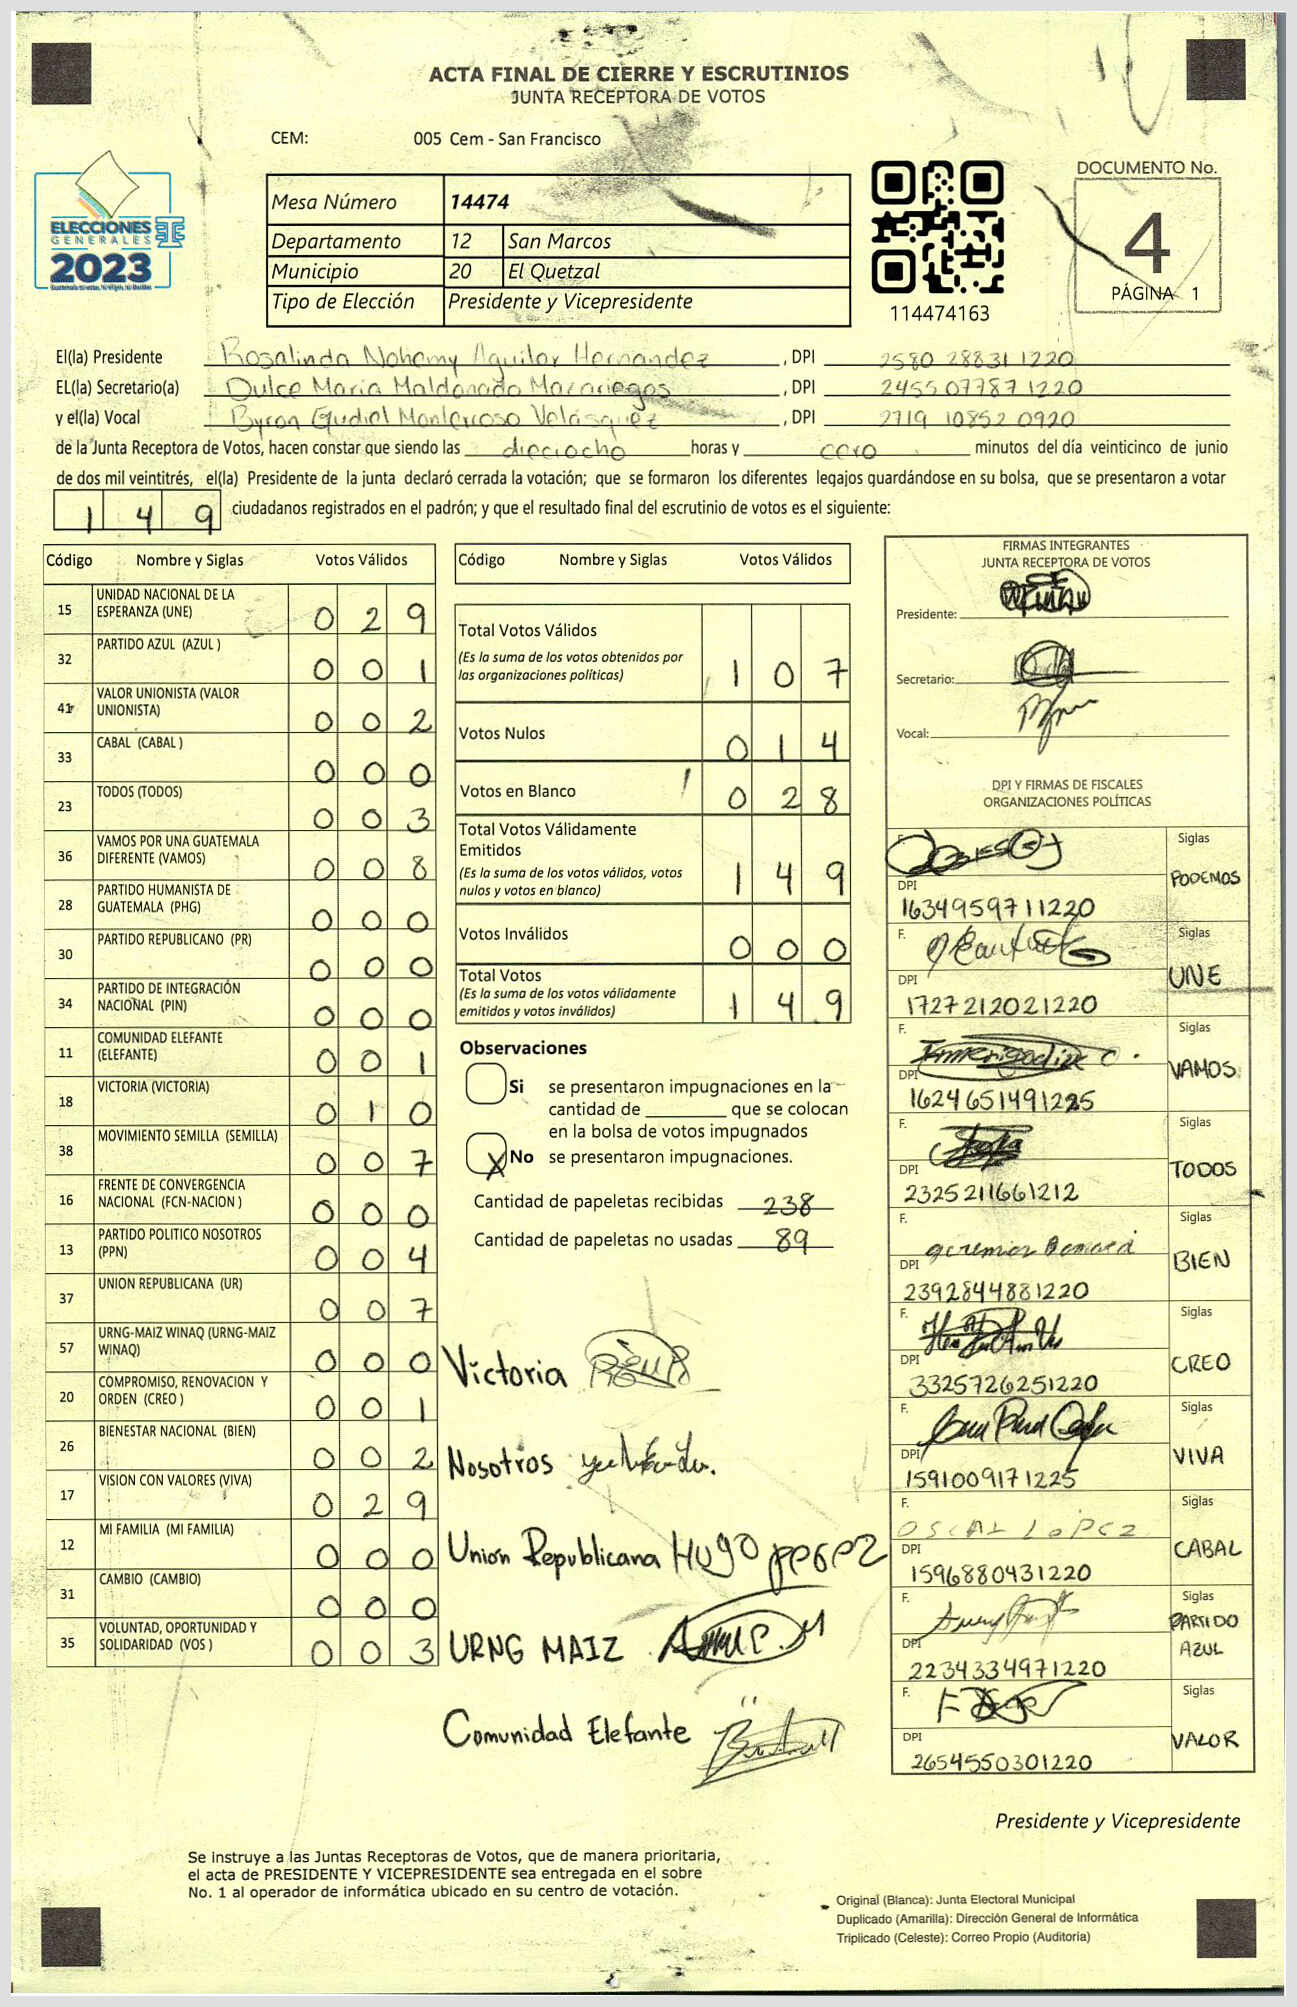 ACTA FINAL DE CIERRE Y ESCRUTINIOS
JUNTA RECEPTORA DE VOTOS
CEM: 005 Cem - San Francisco
ELECCIONES
GENERALES
2023
Mesa Número 14474
Departamento 12 San Marcos
Municipio 20 El Quetzal
Tipo de Elección Presidente y Vicepresidente
114474163
DOCUMENTO No.
4
PÁGINA 1
El(la) Presidente Rosalinda Nohemy Aguilar Hernandez, DPI 2580 28831 1220
EL(la) Secretario(a) Dulce María Maldonado Mazariegos, DPI 2455 07787 1220
y el(la) Vocal Byron Gudiel Monterroso Velásquez, DPI 2719 10852 0920
de la Junta Receptora de Votos, hacen constar que siendo las dieciocho horas y cero minutos del día veinticinco de junio
de dos mil veintitrés, el(la) Presidente de la junta declaró cerrada la votación; que se formaron los diferentes legajos guardándose en su bolsa, que se presentaron a votar
149 ciudadanos registrados en el padrón; y que el resultado final del escrutinio de votos es el siguiente:
Código Nombre y Siglas Votos Válidos
15 UNIDAD NACIONAL DE LA
ESPERANZA (UNE) 0 2 9
32 PARTIDO AZUL (AZUL ) 0 0 1
41 VALOR UNIONISTA (VALOR
UNIONISTA) 0 0 2
33 CABAL (CABAL ) 0 0 0
23 TODOS (TODOS) 0 0 3
36 VAMOS POR UNA GUATEMALA
DIFERENTE (VAMOS) 0 0 8
28 PARTIDO HUMANISTA DE
GUATEMALA (PHG) 0 0 0
30 PARTIDO REPUBLICANO (PR) 0 0 0
34 PARTIDO DE INTEGRACIÓN
NACIONAL (PIN) 0 0 0
11 COMUNIDAD ELEFANTE
(ELEFANTE) 0 0 1
18 VICTORIA (VICTORIA) 0 1 0
38 MOVIMIENTO SEMILLA (SEMILLA) 0 0 7
16 FRENTE DE CONVERGENCIA
NACIONAL (FCN-NACION ) 0 0 0
13 PARTIDO POLITICO NOSOTROS
(PPN) 0 0 4
37 UNION REPUBLICANA (UR) 0 0 7
57 URNG-MAIZ WINAQ (URNG-MAIZ
WINAQ) 0 0 0
20 COMPROMISO, RENOVACION Y
ORDEN (CREO ) 0 0 1
26 BIENESTAR NACIONAL (BIEN) 0 0 2
17 VISION CON VALORES (VIVA) 0 2 9
12 MI FAMILIA (MI FAMILIA) 0 0 0
31 CAMBIO (CAMBIO) 0 0 0
35 VOLUNTAD, OPORTUNIDAD Y
SOLIDARIDAD (VOS ) 0 0 3
Código Nombre y Siglas Votos Válidos
Total Votos Válidos
(Es la suma de los votos obtenidos por
las organizaciones políticas) 1 0 7
Votos Nulos 0 1 4
Votos en Blanco 0 2 8
Total Votos Válidamente
Emitidos
(Es la suma de los votos válidos, votos
nulos y votos en blanco) 1 4 9
Votos Inválidos 0 0 0
Total Votos
(Es la suma de los votos válidamente
emitidos y votos inválidos) 1 4 9
Observaciones
Si se presentaron impugnaciones en la
cantidad de ________ que se colocan
en la bolsa de votos impugnados
X No se presentaron impugnaciones.
Cantidad de papeletas recibidas 238
Cantidad de papeletas no usadas 89
Victoria
Nosotros
Union Republicana Hugo
URNG MAIZ
Comunidad Elefante
FIRMAS INTEGRANTES
JUNTA RECEPTORA DE VOTOS
Presidente:
Secretario:
Vocal:
DPI Y FIRMAS DE FISCALES
ORGANIZACIONES POLÍTICAS
F. Siglas
PODEMOS
DPI
1634959711220
F. Siglas
UNE
DPI
1727212021220
F. Siglas
VAMOS
DPI
1624651491225
F. Siglas
TODOS
DPI
2325211661212
F. Siglas
BIEN
DPI
2392844881220
F. Siglas
CREO
DPI
3325726251220
F. Siglas
VIVA
DPI
1591009171225
F. Siglas
OSCAR LOPEZ
CABAL
DPI
1596880431220
F. Siglas
PARTIDO
AZUL
DPI
2234334971220
F. Siglas
VALOR
DPI
2654550301220
Presidente y Vicepresidente
Se instruye a las Juntas Receptoras de Votos, que de manera prioritaria,
el acta de PRESIDENTE Y VICEPRESIDENTE sea entregada en el sobre
No. 1 al operador de informática ubicado en su centro de votación.
Original (Blanca): Junta Electoral Municipal
Duplicado (Amarilla): Dirección General de Informática
Triplicado (Celeste): Correo Propio (Auditoria)